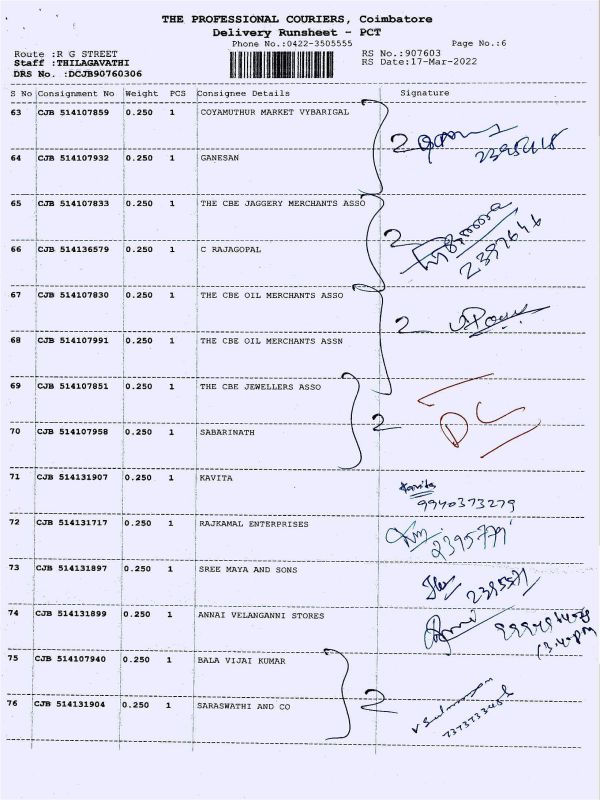 THE PROFESSIONAL COURIERS, Coimbatore
Delivery Runsheet - PCT
Phone No.:0422-3505555 Page No.:6
Route :R G STREET RS No.:907603
Staff :THILAGAVATHI RS Date:17-Mar-2022
DRS No. :DCJB90760306
S No Consignment No Weight PCS Consignee Details Signature
63 CJB 514107859 0.250 1 COYAMUTHUR MARKET VYBARIGAL
2
64 CJB 514107932 0.250 1 GANESAN
65 CJB 514107833 0.250 1 THE CBE JAGGERY MERCHANTS ASSO
2
66 CJB 514136579 0.250 1 C RAJAGOPAL
67 CJB 514107830 0.250 1 THE CBE OIL MERCHANTS ASSO
2
68 CJB 514107991 0.250 1 THE CBE OIL MERCHANTS ASSN
69 CJB 514107851 0.250 1 THE CBE JEWELLERS ASSO
2 DC
70 CJB 514107958 0.250 1 SABARINATH
71 CJB 514131907 0.250 1 KAVITA Kavita
9940373279
72 CJB 514131717 0.250 1 RAJKAMAL ENTERPRISES
2395779
73 CJB 514131897 0.250 1 SREE MAYA AND SONS
74 CJB 514131899 0.250 1 ANNAI VELANGANNI STORES
75 CJB 514107940 0.250 1 BALA VIJAI KUMAR
2
76 CJB 514131904 0.250 1 SARASWATHI AND CO